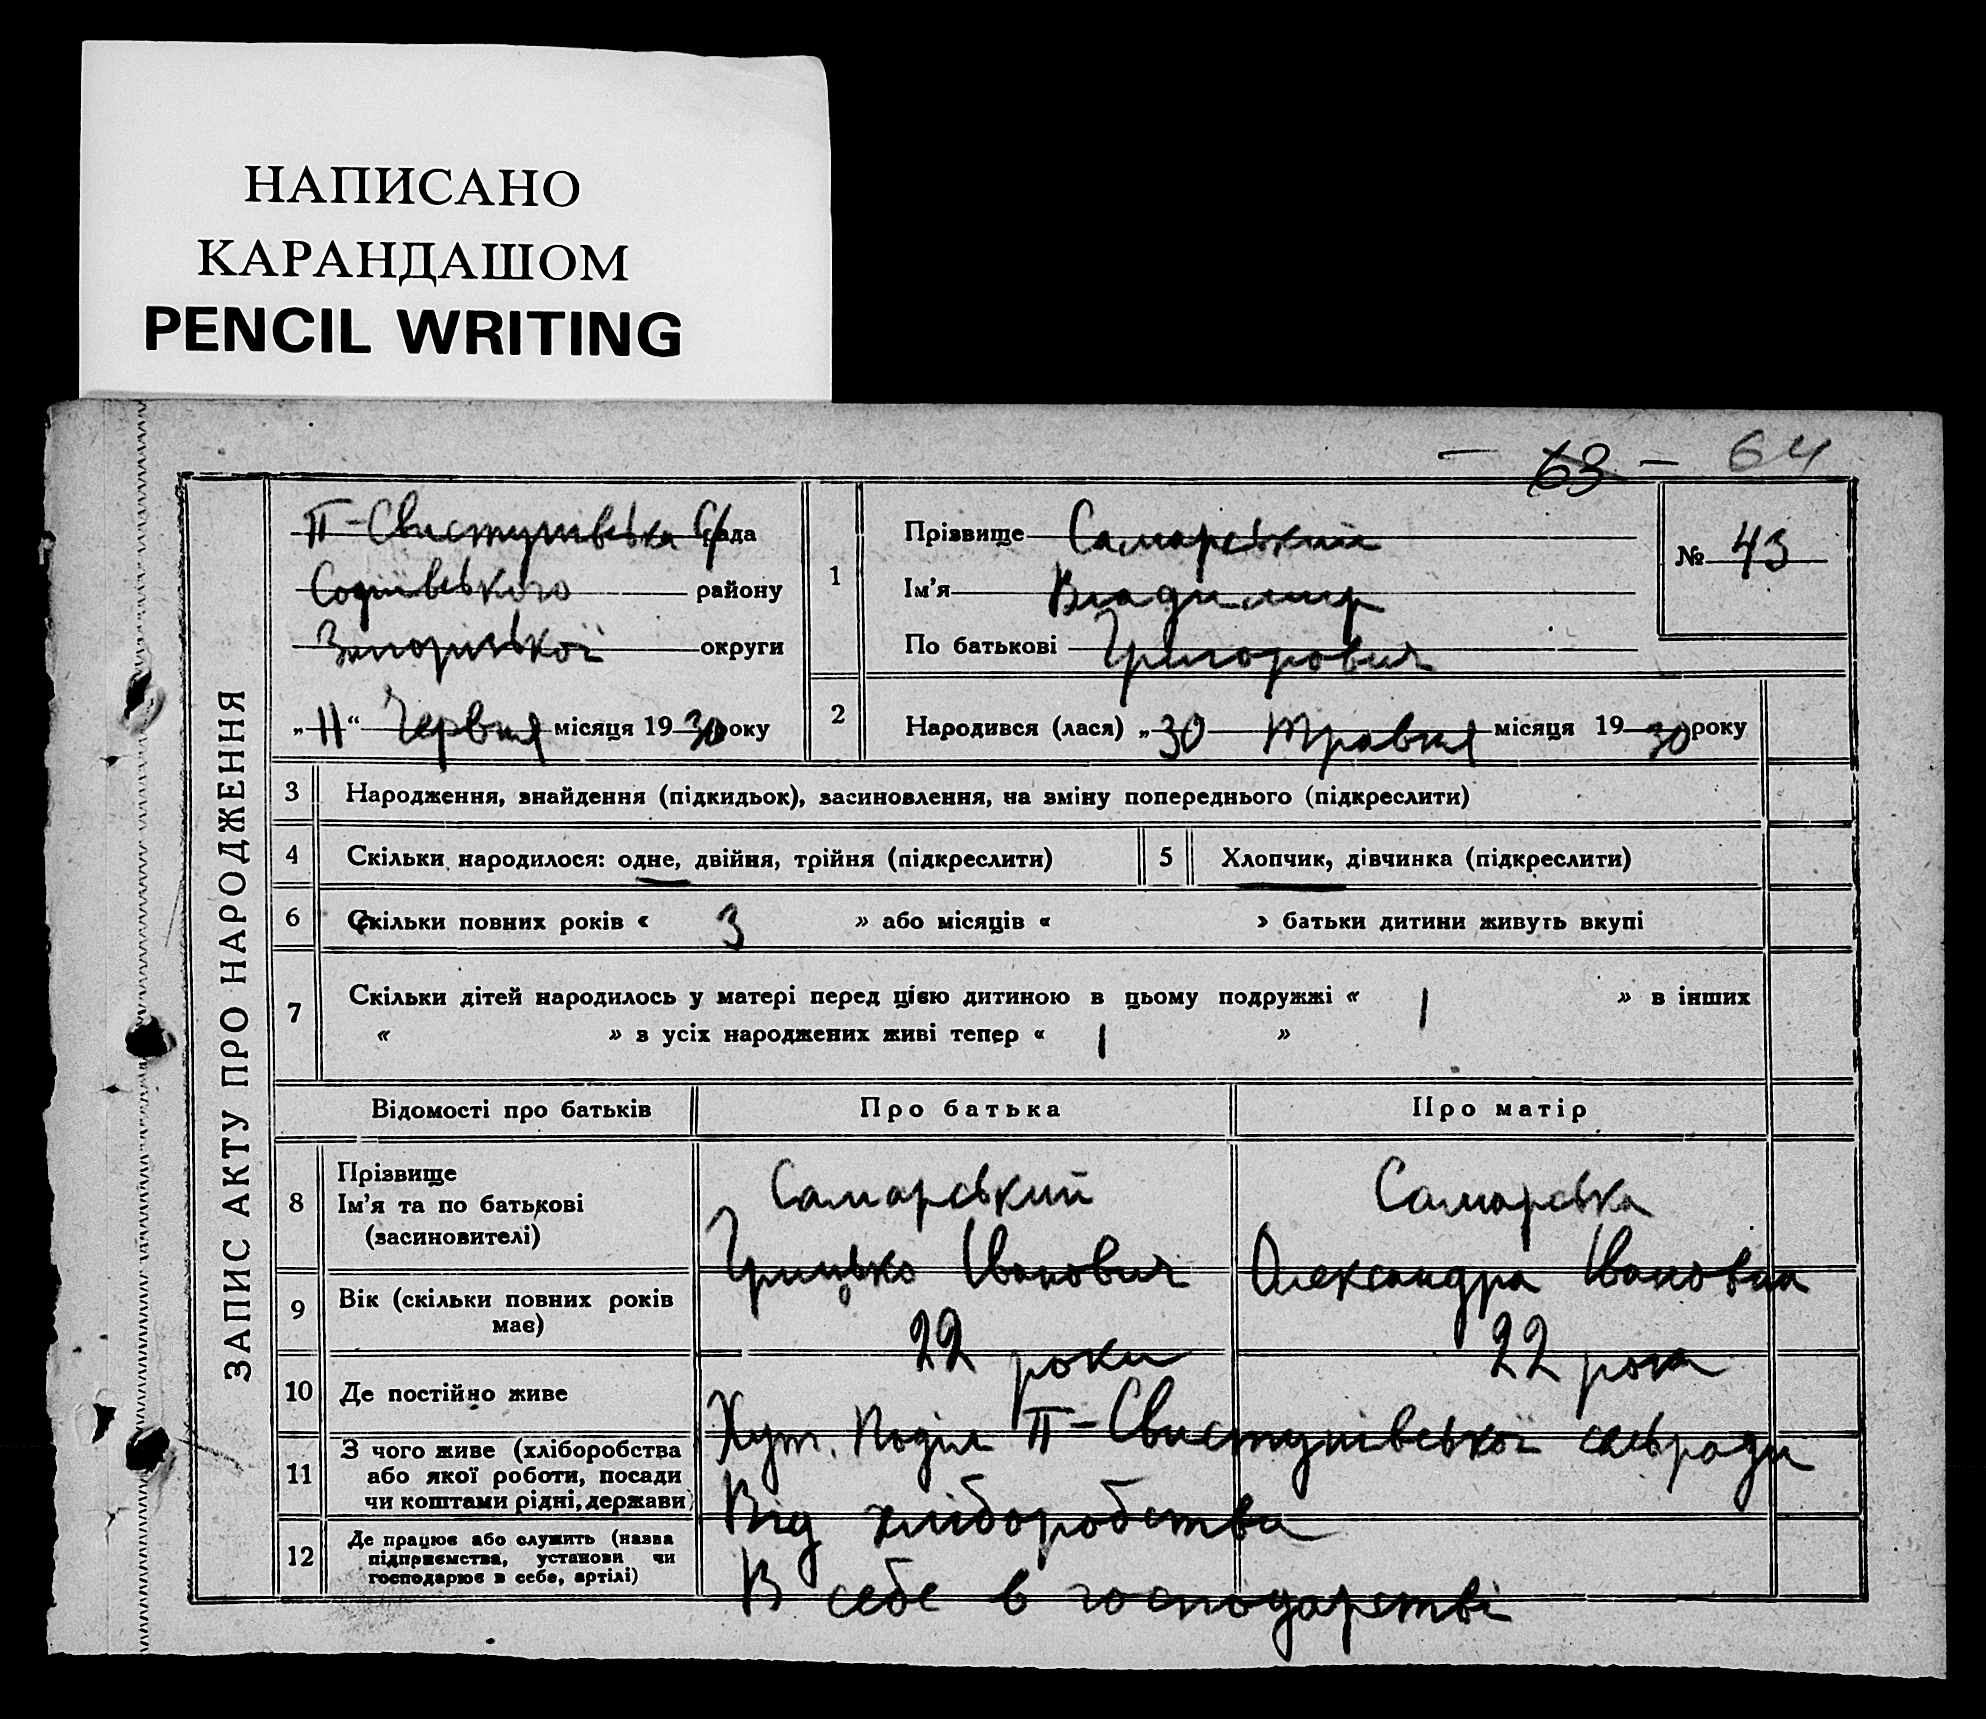 НАПИСАНО
КАРАНДАШОМ
PENCIL WRITING
63 — 64
ЗАПИС АКТУ ПРО НАРОДЖЕННЯ
II-Свистунівська С/рада
Софіївського району
Запорізької округи
„11“ Червня місяця 1930 року
1
Прізвище Самарський
Ім’я Владимир
По батькові Григорович
№ 43
2 Народився (лася) „30 травня місяця 1930 року
3 Народження, знайдення (підкидьок), засиновлення, на зміну попереднього (підкреслити)
4 Скільки народилося: одне, двійня, трійня (підкреслити) 5 Хлопчик, дівчинка (підкреслити)
6 Скільки повних років « 3 » або місяців « » батьки дитини живуть вкупі
7 Скільки дітей народилось у матері перед цією дитиною в цьому подружжі « 1 » в інших
« » з усіх народжених живі тепер « 1 »
Відомості про батьків Про батька Про матір
8 Прізвище
Ім’я та по батькові
(засиновителі)
Самарський
Грицько Іванович
Самарська
Олександра Івановна
9 Вік (скільки повних років
має)
22 роки 22 роки
10 Де постійно живе Хут. Поділ II-Свистунівської сельради
11 З чого живе (хліборобства
або якої роботи, посади
чи коштами рідні, держави)
Від хліборобства
12 Де працює або служить (назва
підприємства, установи чи
господарює в себе, артілі)
В себе в господарстві